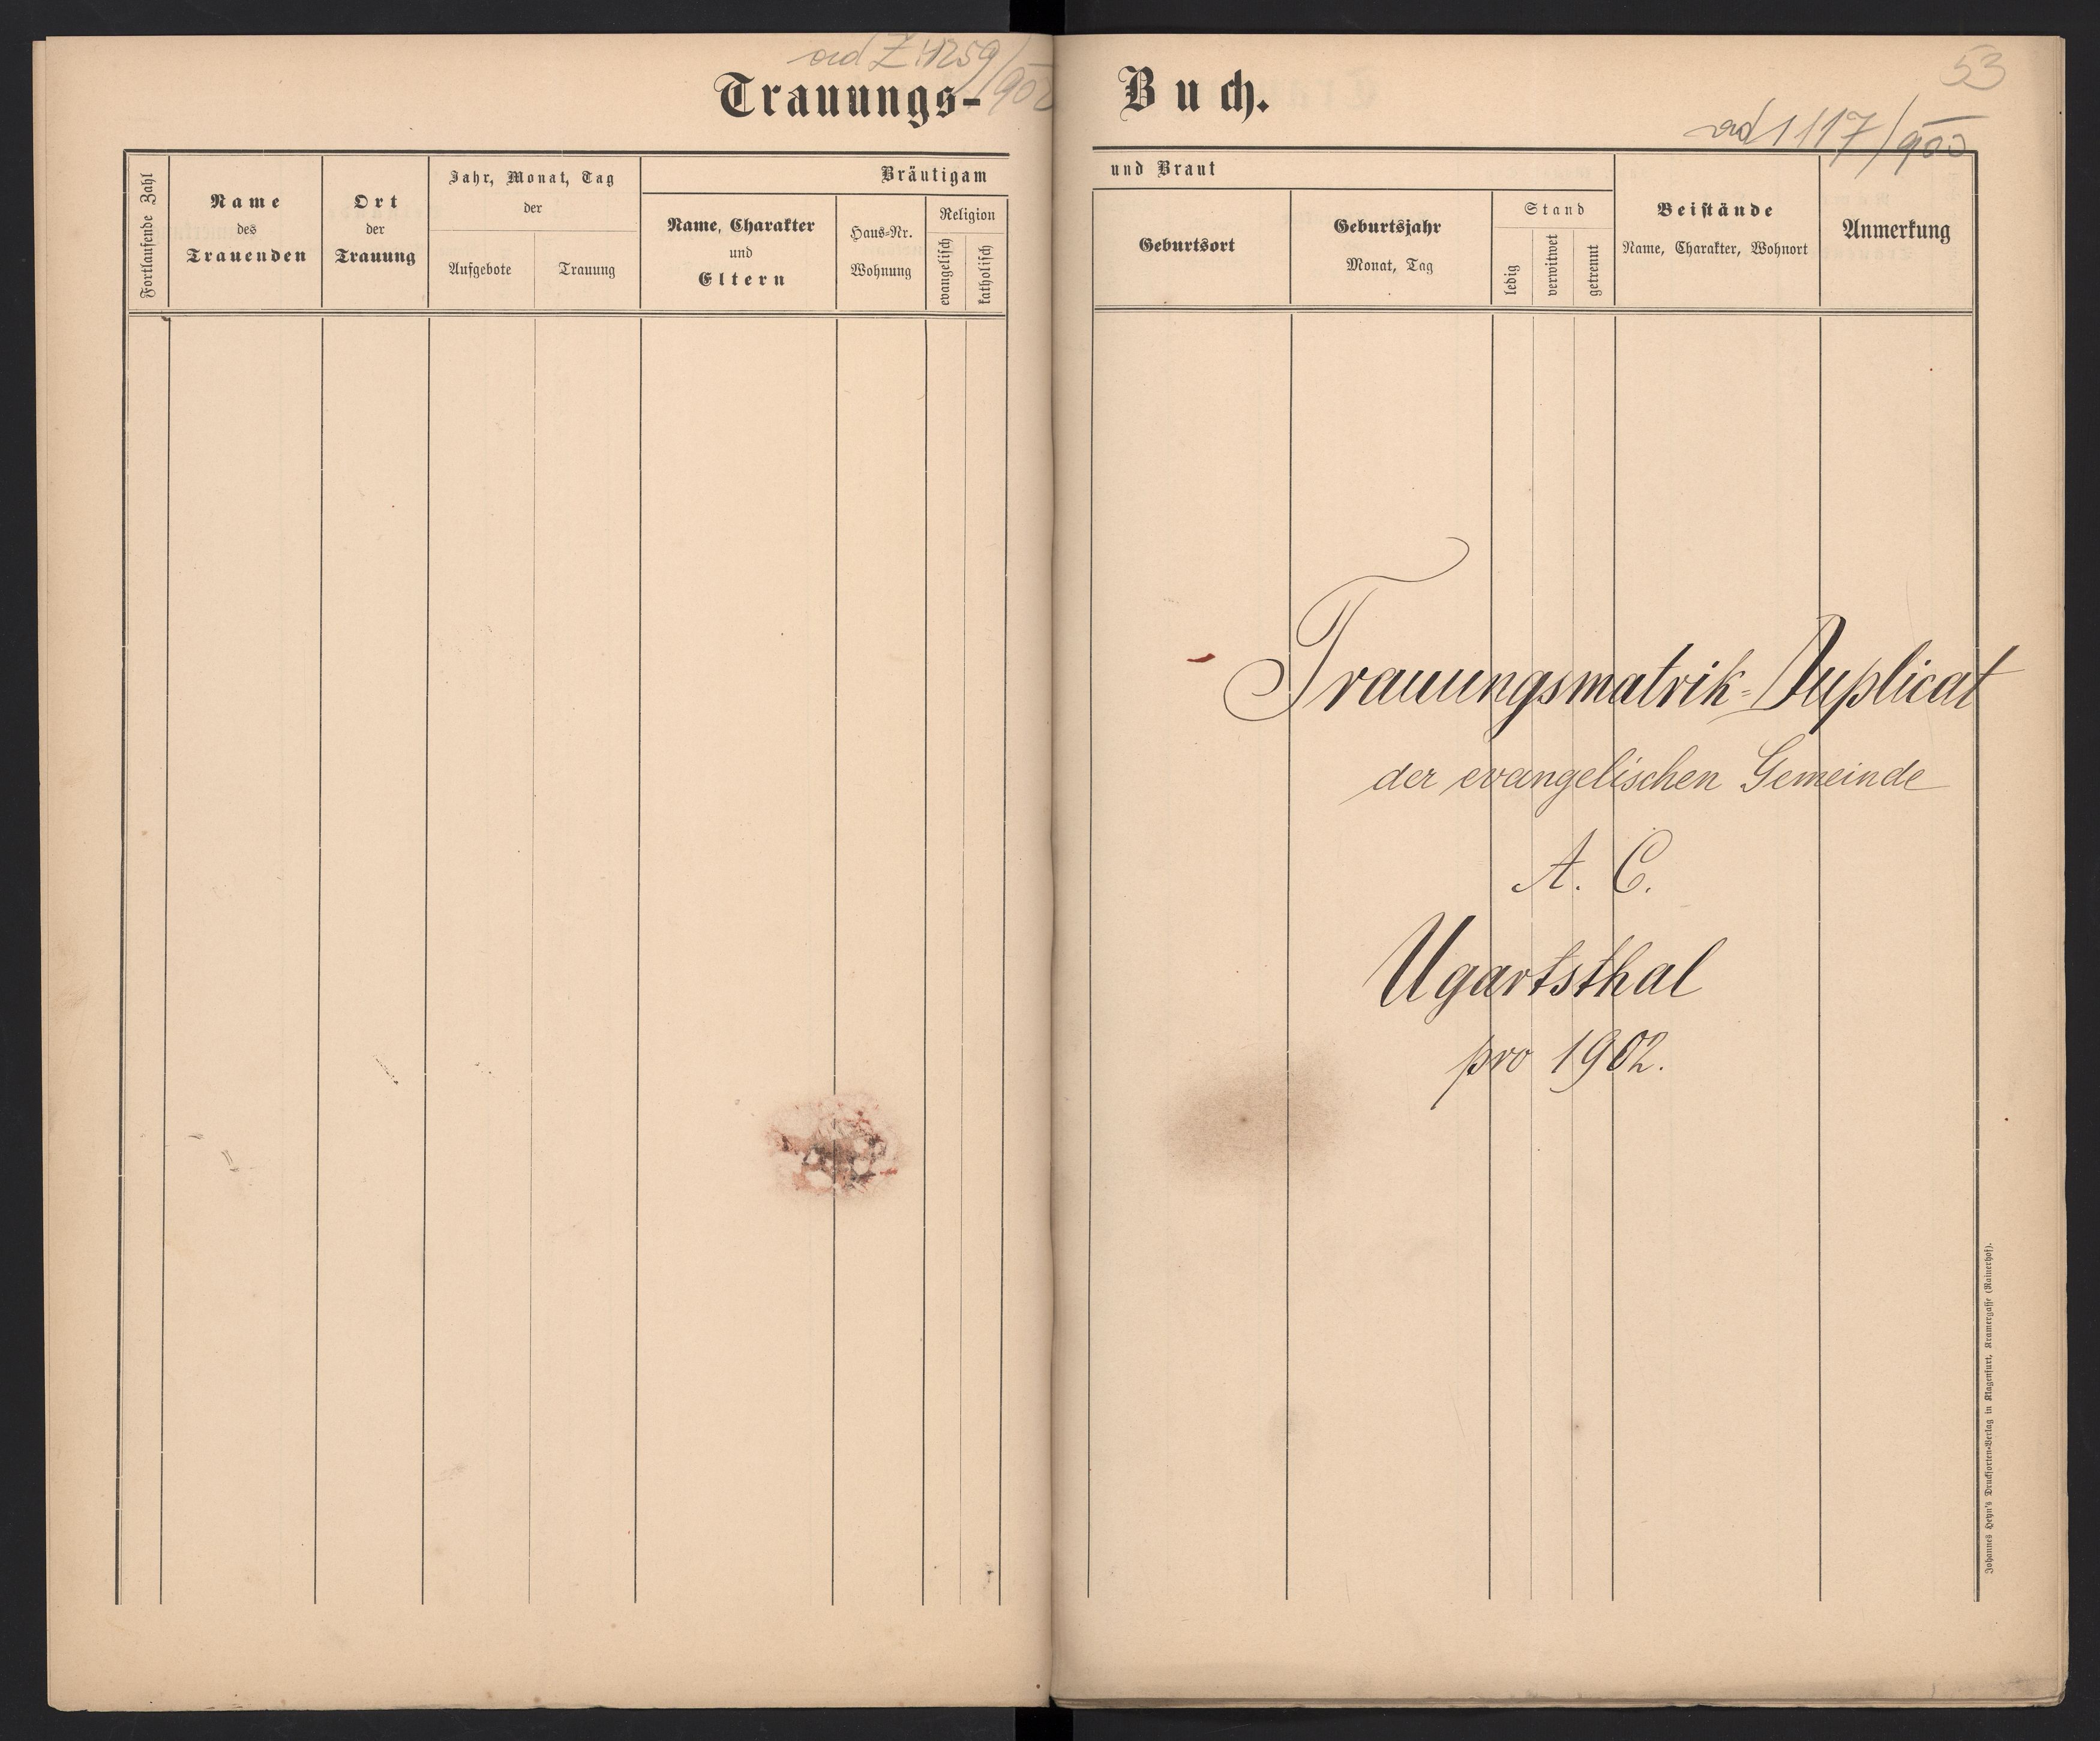 ad Z 4259/902
Trauungs-
Fortlaufende Zahl
Name
des
Trauenden
Ort
der
Trauung
Jahr, Monat, Tag
der
Aufgebote
Trauung
Bräutigam
Name, Charakter
und
Eltern
Haus-Nr.
Wohnung
Religion
evangelisch
katholisch
53
Buch.
ad 1117/903
und Braut
Geburtsort
Geburtsjahr
Monat, Tag
Stand
ledig
verwitwet
getrennt
Beistände
Name, Charakter, Wohnort
Anmerkung
Trauungsmatrik-Duplicat
der evangelischen Gemeinde
A. C.
Ugartsthal
pro 1902.
Johannes Heyn's Drucksorten-Verlag in Klagenfurt, Kramergasse (Rainerhof).